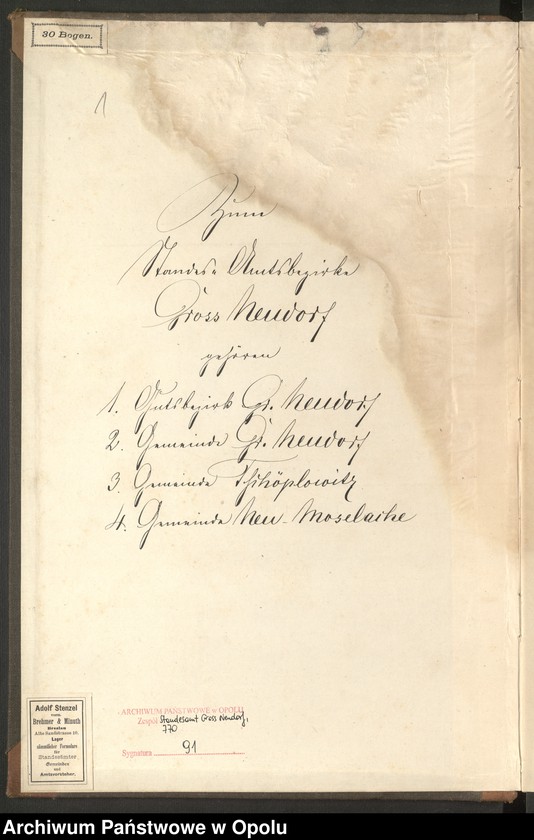 30 Bogen.
1
Zum
Standes- Amtsbezirke
Gross Neudorf
gehören
1. Gutsbezirk Gr. Neudorf
2. Gemeinde Gr. Neudorf
3. Gemeinde Tschöplowitz
4. Gemeinde Neu- Moselache
Adolf Stenzel
vorm.
Brehmer & Minuth
Breslau
Lager
sämmtlicher Formulare
für
Standesämter
Gemeinden
und
Amtsvorsteher.
ARCHIWUM PAŃSTWOWE w OPOLU
Zespół Standesamt Gross Neudorf,
770
Sygnatura 91
Archiwum Państwowe w Opolu